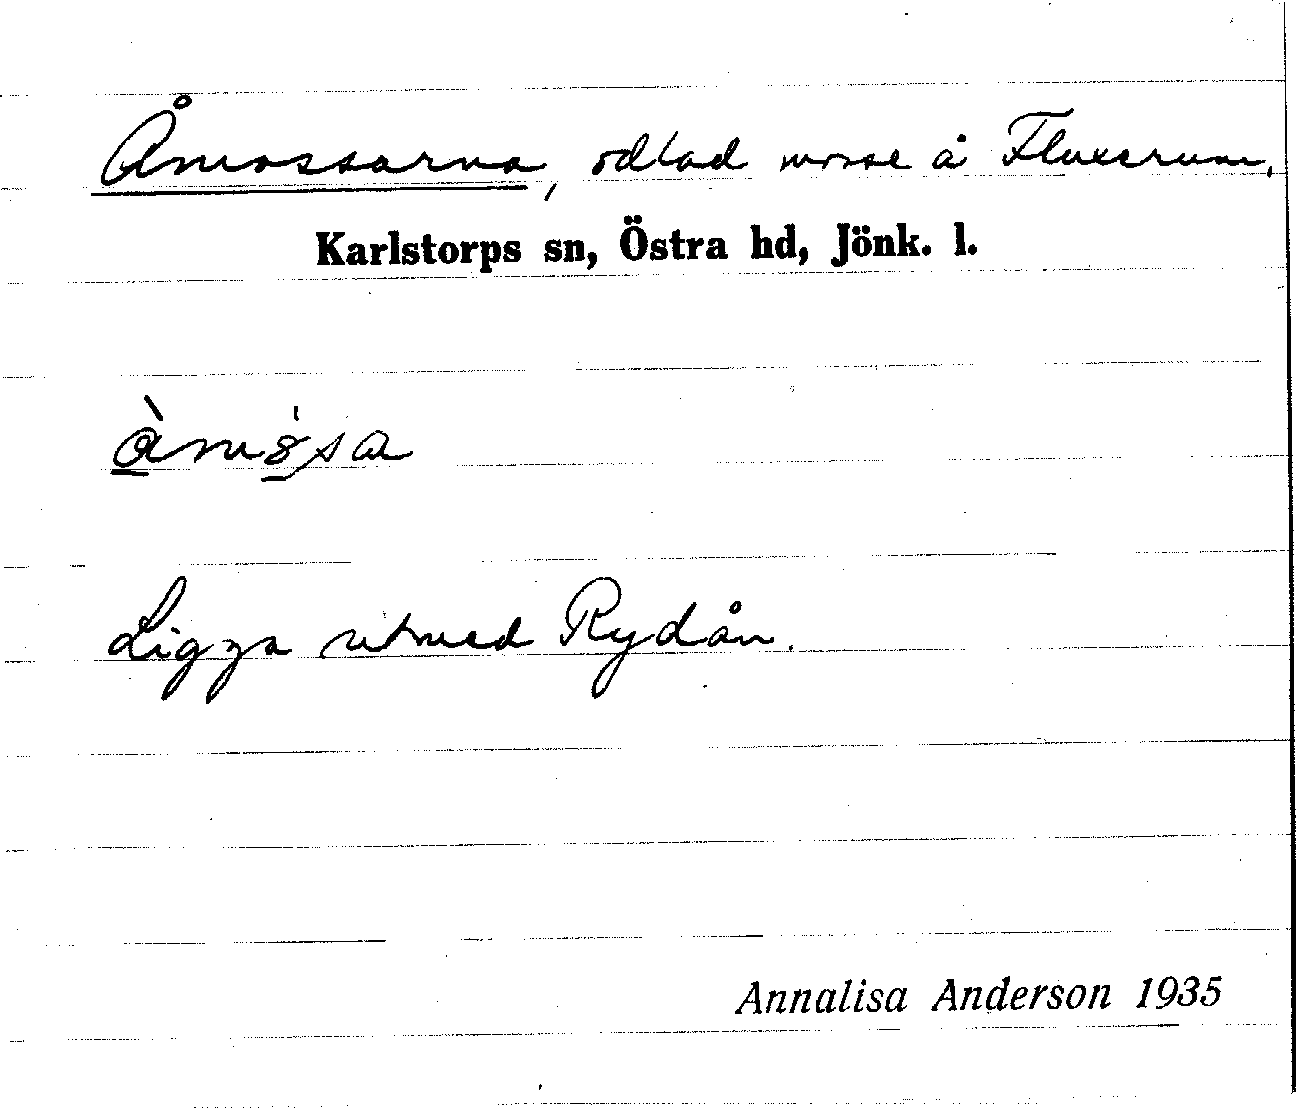 Åmossarna, odlad mosse å Fluxerum,
Karlstorps sn, Östra hd, Jönk. l.
Ligga utmed Rydån.
Annalisa Anderson 1935